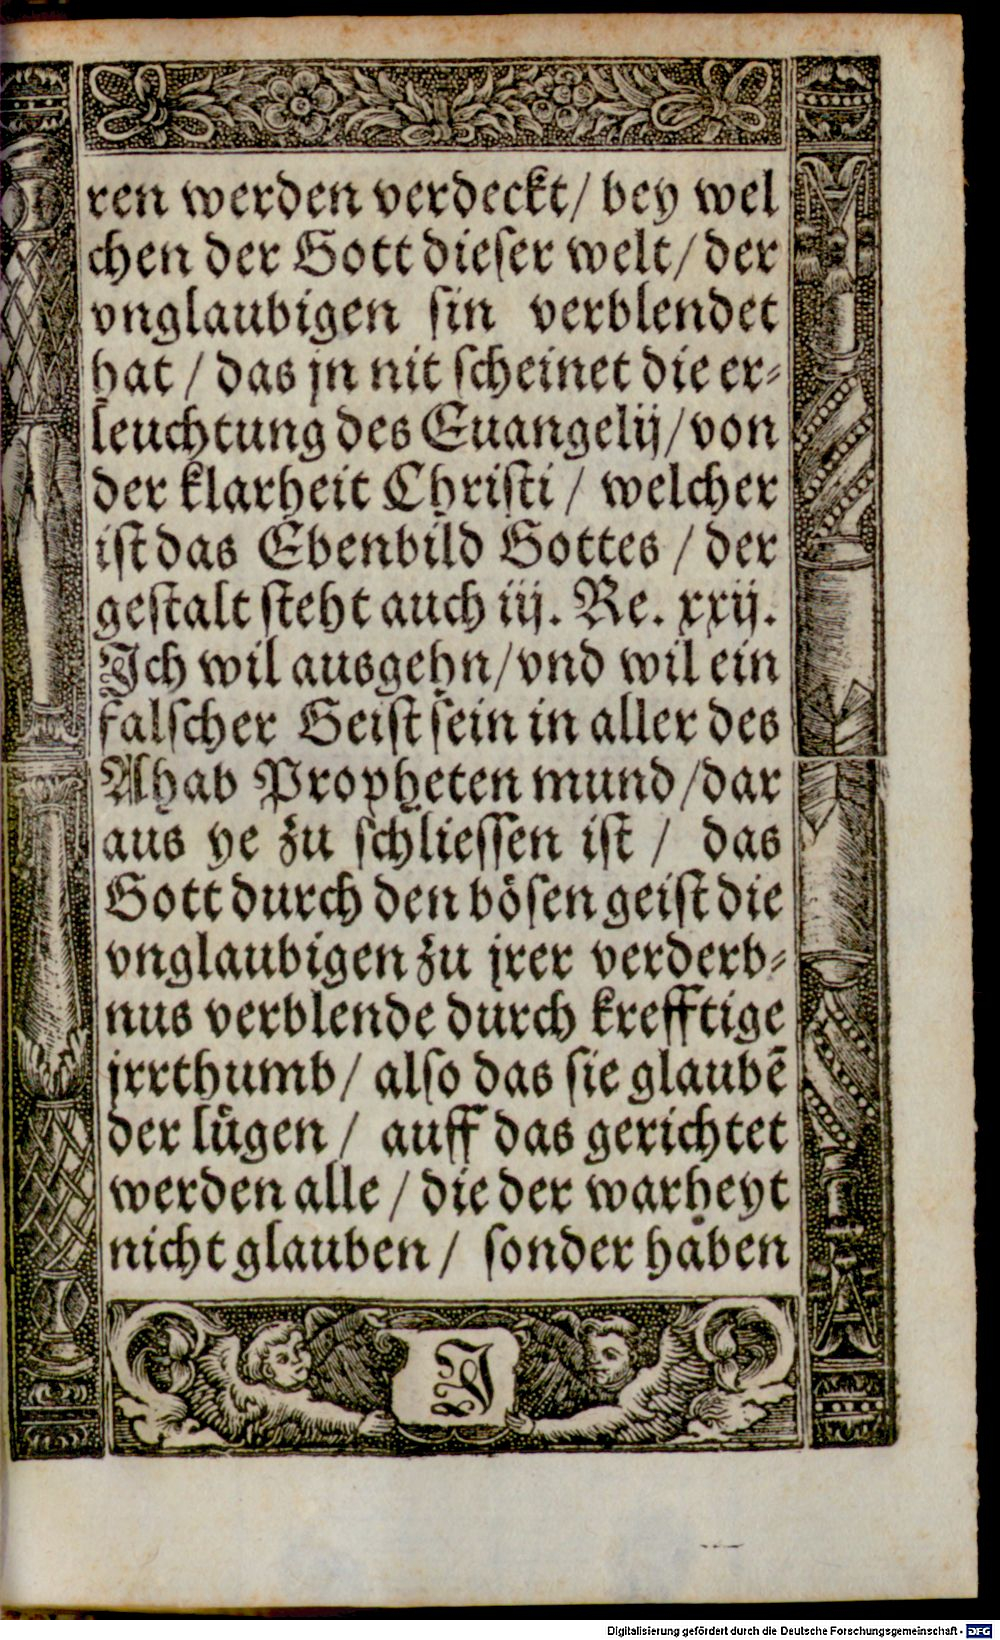 ren werden verdeckt/ bey wel
chen der Gott dieser welt/ der
vnglaubigen sin verblendet
hat / das jn nit scheinet die er⸗
leuchtung des Euangelij/ von
der klarheit Christi / welcher
ist das Ebenbild Gottes / der
gestalt steht auch iij. Re. xxij.
Ich wil ausgehn/ vnd wil ein
falscher Geist sein in aller des
Ahab Propheten mund /dar
aus ye zu schliessen ist / das
Gott durch den bösen geist die
vnglaubigen zu jrer verderb⸗
nus verblende durch krefftige
jrrthumb/ also das sie glaubē
der luͤgen / auff das gerichtet
werden alle / die der warheyt
nicht glauben / sonder haben
J
Digitalisierung gefördert durch die Deutsche Forschungsgemeinschaft - DFG